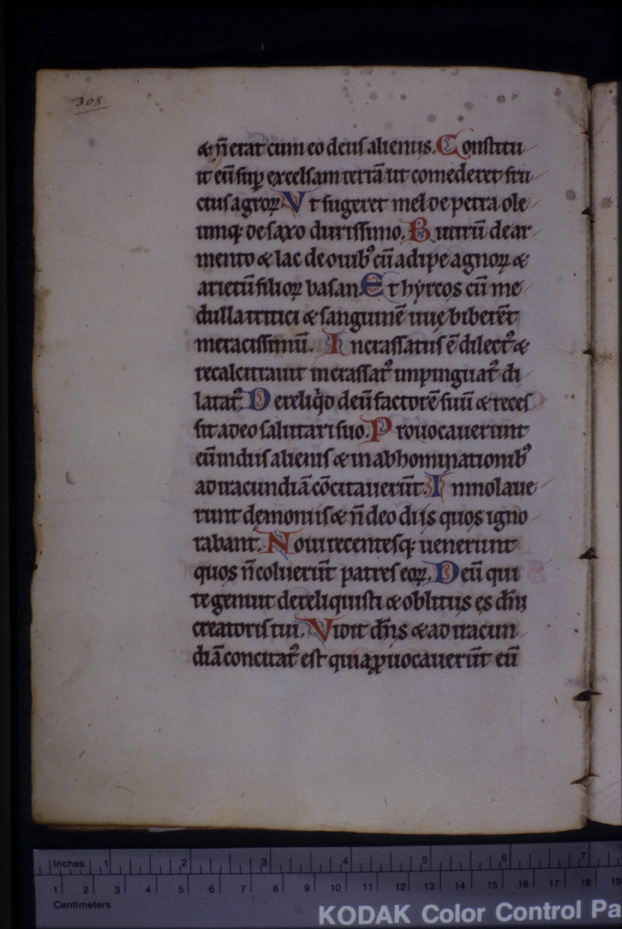 308
& n̄ erat cum eo deus alienus. Constitu
it eū sup̱ excelsam terrā ut comederet fru
ctus agroꝝ. Ut sugeret mel de petra ole
umq; de saxo durissimo. Butirū de ar
mento & lac de ouibꝰ cū adipe agnoꝝ &
arietū filioꝝ basan. Et hyrcos cū me
dulla tritici & sanguinē uuę biberēt
meracissimū. Incrassatus ē dilectꝰ &
recalcitrauit incrassatꝰ impinguatꝰ di
latatꝰ. Dereliq̇d deū factorē suū & reces
sit a deo salutari suo. Prouocauerunt
eū in diis alienis & in abhominationibꝰ
ad iracundiā cōcitauerūt. Immolaue
runt demoniis & n̄ deo diis quos igno
rabant. Noui recentesq; uenerunt
quos n̄ coluerūt patres eoꝝ. Deū qui
te genuit dereliquisti & oblitus es dn̄i
creatoris tui. Vidit dn̄s & ad iracun
diā concitatꝰ est quia ꝓuocauerūt eū
Inches 1 2 3 4 5 6 7
1 2 3 4 5 6 7 8 9 10 11 12 13 14 15 16 17 18 19
Centimeters
KODAK Color Control Pa